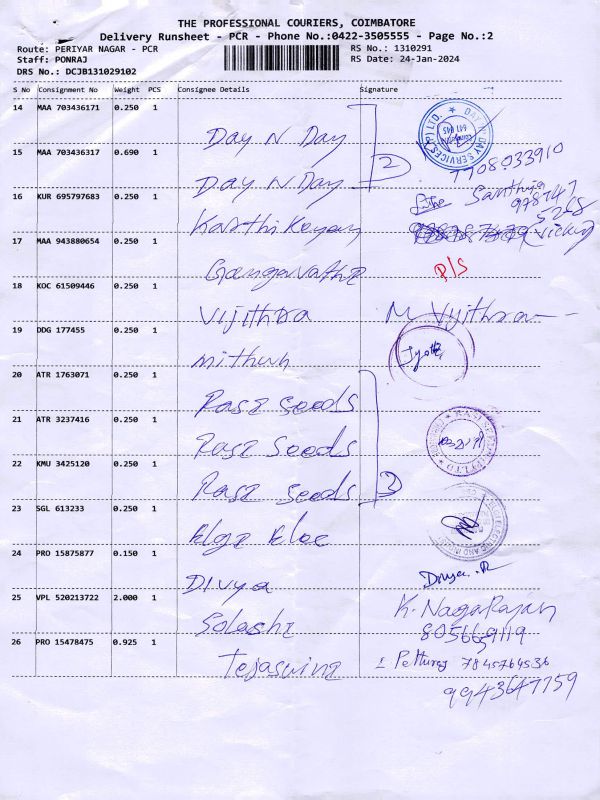 THE PROFESSIONAL COURIERS, COIMBATORE
Delivery Runsheet - PCR - Phone No.:0422-3505555 - Page No.:2
Route: PERIYAR NAGAR - PCR
RS No.: 1310291
Staff: PONRAJ
RS Date: 24-Jan-2024
DRS No.: DCJB131029102
S No Consignment No Weight PCS Consignee Details Signature
14 MAA 703436171 0.250 1 Day N Day
15 MAA 703436317 0.690 1 Day N Day 2 7708033910
16 KUR 695797683 0.250 1 Karthi Keyan Santhiya
17 MAA 943880654 0.250 1 P/S
18 KOC 61509446 0.250 1 Vijithra M Vyithra
19 DDG 177455 0.250 1 Mithun
20 ATR 1763071 0.250 1 Rasi Seeds
21 ATR 3237416 0.250 1 Rasi Seeds
22 KMU 3425120 0.250 1 Rasi Seeds 3
23 SGL 613233 0.250 1 Elgi Elec
24 PRO 15875877 0.150 1 Divya Divya. R
25 VPL 520213722 2.000 1 K. NagaRajan
26 PRO 15478475 0.925 1 Tejaswini 7845764536
9943647759